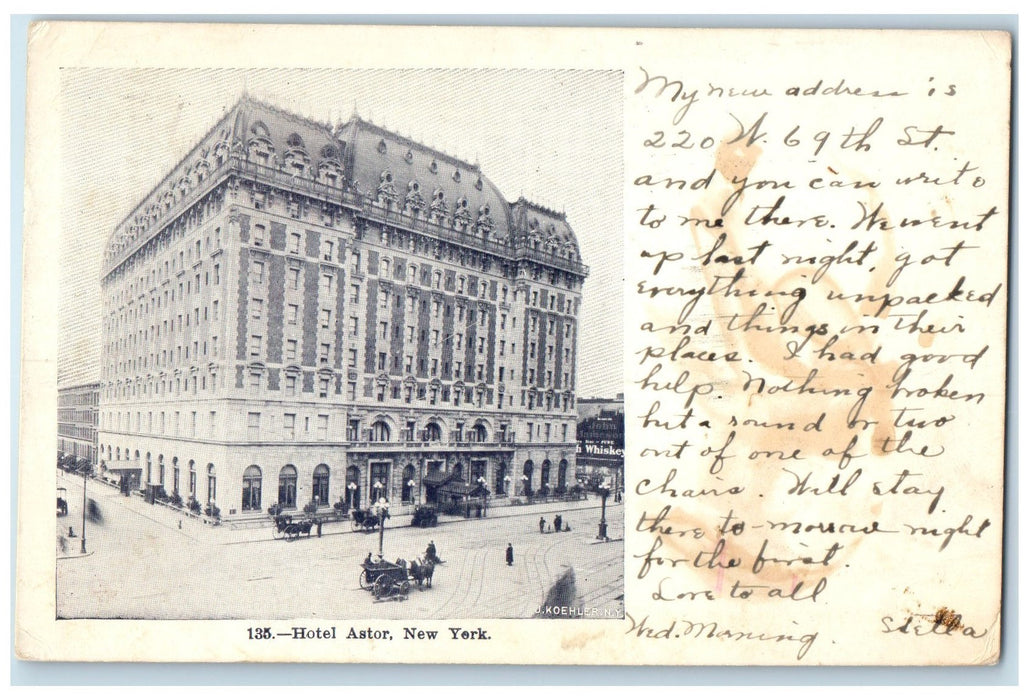 My new address is
220 W. 69th St.
and you can write
to me there. We went
up last night, got
everything unpacked
and things in their
places. I had good
help. Nothing broken
but a round or two
out of one of the
chairs. Will stay
there to-morrow night
for the first.
Love to all
Wed. Morning. Stella
John
Jameson
Whiskey
J. KOEHLER. N.Y.
135.—Hotel Astor, New York.